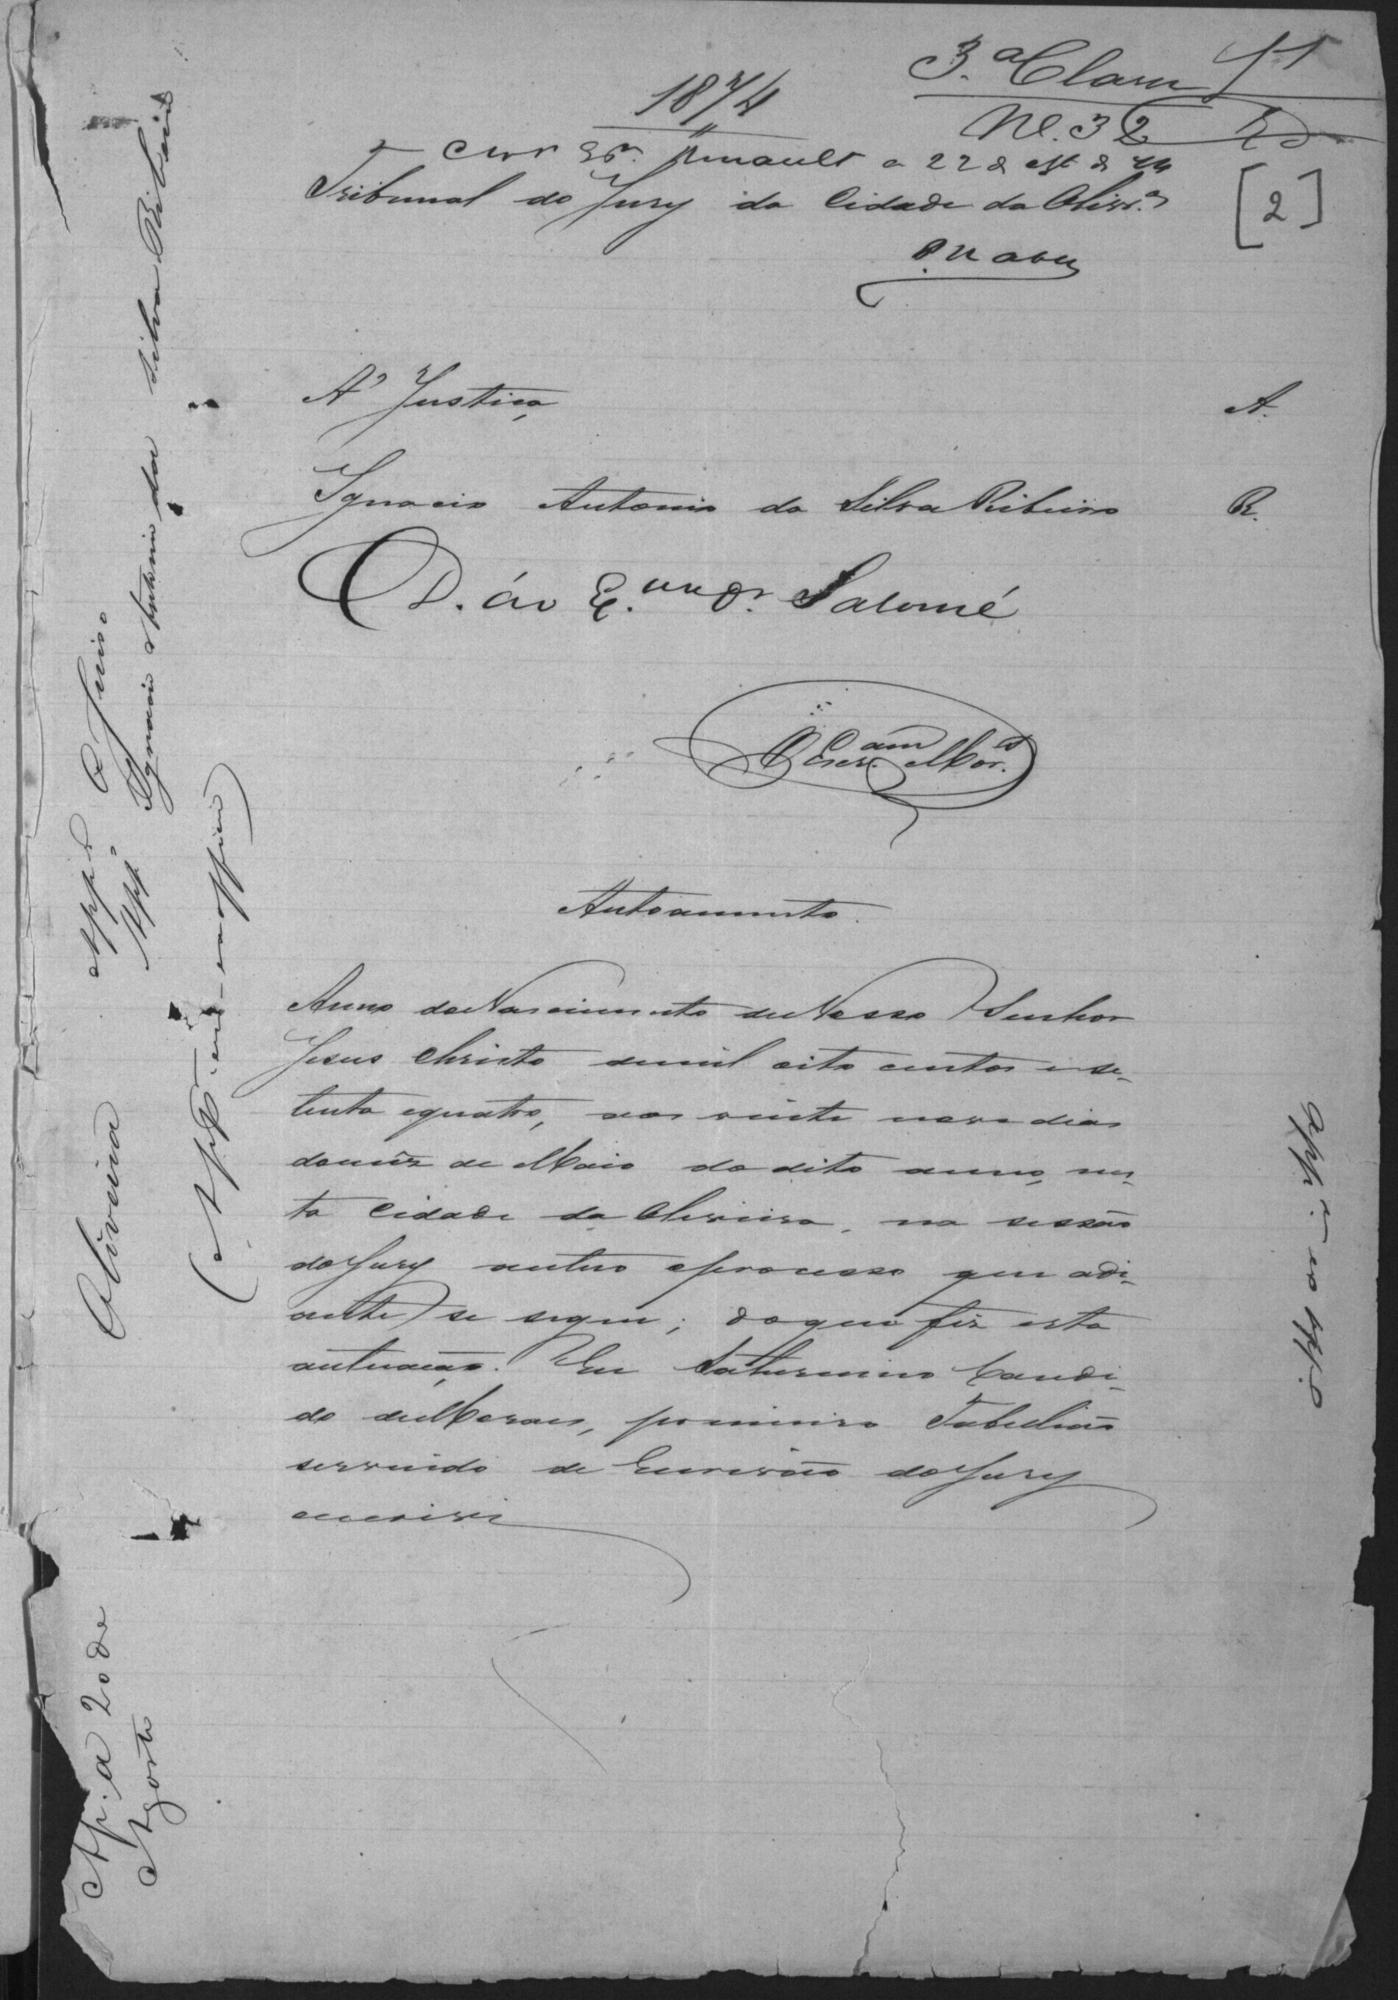 3.ª Classe f 1
1874
Nº. 32
[2]
a 22 de
Tribunal do Jury da Cidade da Olivr.ª
A' Justiça, A.
Ignacio Antonio da Silva Ribeiro R.
D. áo E. Salomé
O Escr.am Mor.es
Autoamento.
Anno do Nascimento de Nosso Senhor
Jesus Christo de mil oito centos e se-
tenta e quatro, aos vinte nove dias
do mez de Maio do dito anno, nes-
ta Cidade da Oliveira, na sessão
do Jury autuo o processo que adi-
ante se segue; do que fiz esta
autuação. Eu Saturnino Candi-
do de Moraes, primeiro Tabelião
servindo de Escrivão do Jury
escrevi
Oliveira
App.e O Juiso
App.º Ignacio Antonio da Silva Ribeiro
(App. ex-officio)
Ap. a 20 de
Agosto
App. ex off.º